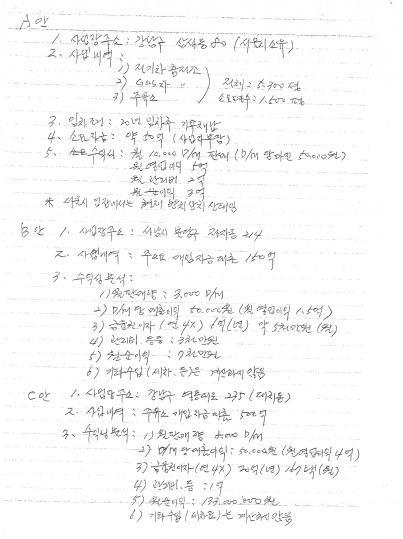 A안
1. 사업장주소 : 강남구 삼성동 80 (서울시소유)
2. 사업내역 :
1) 전기차 충전소
2) Gas차 〃
3) 주유소
전체 : 5,300평
소요면수 : 1,500평
3. 임차조건 : 20년 임차후 기부채납
4. 소요자금 : 약 50억 (사업자부담)
5. 수익시 : 월 10,000 D/M 판매 (D/M 당 마진 50,000원)
월 영업이익 5억
월 관리비 2억
월 순이익 3억
B안 1. 사업장주소 : 성남시 분당구 214
2. 사업내역 : 주유소 매입자금대출 150억
3. 수익성분석 :
1) 월판매량 : 3,000 D/M
2) D/M 당 매출이익 50,000원 (월 영업이익 1.5억)
3) 금융권이자 (연 4%) 6억(년) 약 5천만원 (월)
4) 관리비 등 : 3천만원
5) 월순이익 : 7천만원
6) 기타수입 (세차 등)은 계산하지 않음
C안 1. 사업장주소 : 강남구 영동대로 235 (대치동)
2. 사업내역 : 주유소 매입자금대출 500억
3. 수익성분석 : 1) 월판매량 8,000 D/M
2) D/M 당 매출이익 : 50,000원 (월영업이익 4억)
3) 금융권이자 (연 4%) 20억(년) 167백(월)
4) 관리비 등 : 1억
5) 월순이익 : 133,000,000원
6) 기타수입 (세차 등)은 계산하지 않음